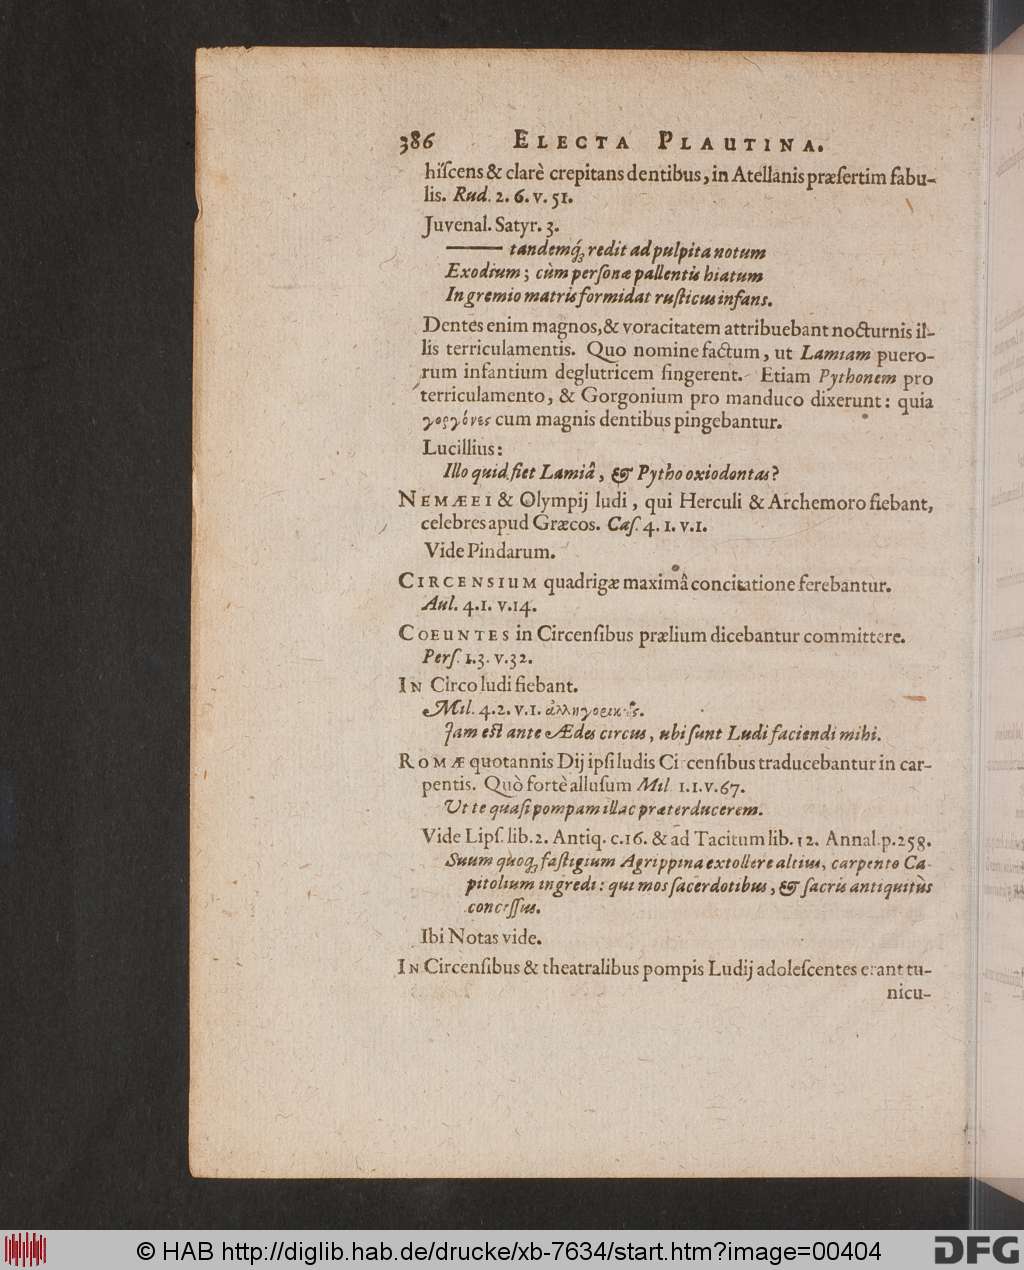 386 ELECTA PLAUTINA.
hiſcens & clarè crepitans dentibus, in Atellanis præſertim fabu-
lis. Rud. 2. 6. v. 51.
Juvenal. Satyr. 3.
——— tandemq́; redit ad pulpita notum
Exodium; cùm perſonæ pallentis hiatum
In gremio matris formidat ruſticus infans.
Dentes enim magnos, & voracitatem attribuebant nocturnis il-
lis terriculamentis. Quo nomine factum, ut Lamiam puero-
rum infantium deglutricem fingerent. Etiam Pythonem pro
terriculamento, & Gorgonium pro manduco dixerunt: quia
γοργόνες cum magnis dentibus pingebantur.
Lucillius:
Illo quid fiet Lamiâ, & Pytho oxiodontas?
NEMÆEI & Olympij ludi, qui Herculi & Archemoro fiebant,
celebres apud Græcos. Caſ. 4. 1. v. 1.
Vide Pindarum.
CIRCENSIUM quadrigæ maximâ concitatione ferebantur.
Aul. 4. 1. v. 14.
COEUNTES in Circenſibus prælium dicebantur committere.
Perſ. 1. 3. v. 32.
IN Circo ludi fiebant.
Mil. 4. 2. v. 1. ἀλληγορικῶς.
Jam eſt ante Ædes circus, ubi ſunt Ludi faciendi mihi.
ROMÆ quotannis Dij ipſi ludis Circenſibus traducebantur in car-
pentis. Quò fortè alluſum Mil. 1. 1. v. 67.
Ut te quaſi pompam illac præterducerem.
Vide Lipſ. lib. 2. Antiq. c. 16. & ad Tacitum lib. 12. Annal. p. 258.
Suum quoq; faſtigium Agrippina extollere altius, carpento Ca-
pitolium ingredi: qui mos ſacerdotibus, & ſacris antiquitùs
conceſſus.
Ibi Notas vide.
IN Circenſibus & theatralibus pompis Ludij adoleſcentes erant tu-
nicu-
© HAB http://diglib.hab.de/drucke/xb-7634/start.htm?image=00404
DFG